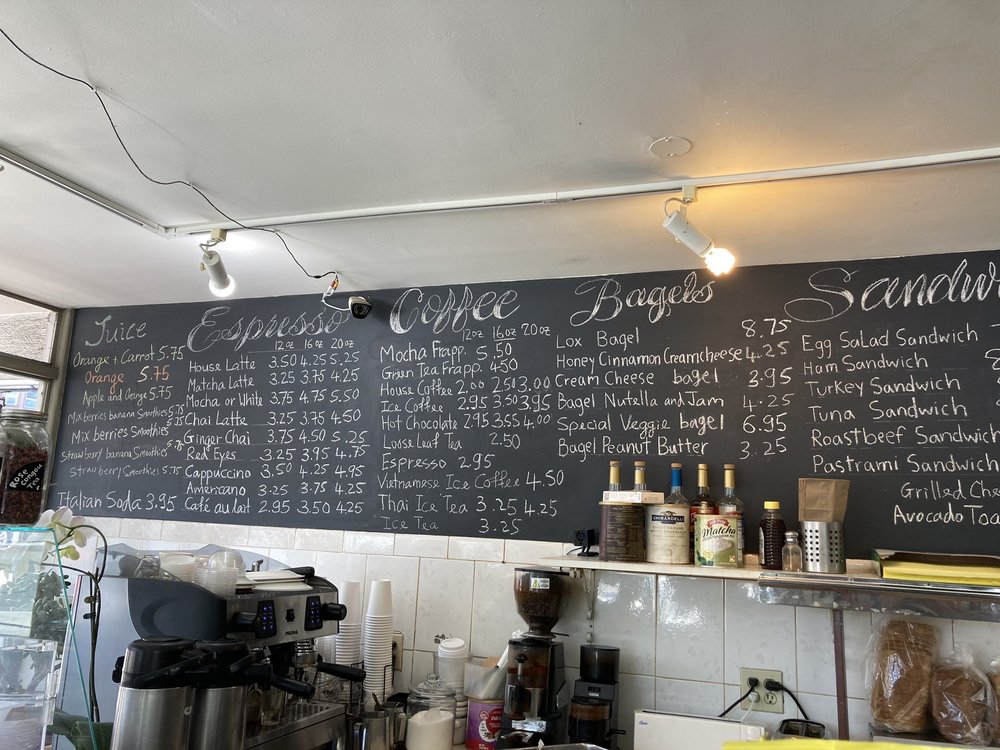 Juice
Orange + Carrot 5.75
Orange 5.75
Apple and Orange 5.75
Mix berries banana Smoothies 5.75
Mix berries Smoothies
Strawberry banana Smoothies 5.75
Strawberry Smoothies 5.75
Italian Soda 3.95
Espresso
12oz 16oz 20oz
House Latte 3.50 4.25 5.25
Matcha Latte 3.25 3.75 4.25
Mocha or White 3.75 4.75 5.50
Chai Latte 3.25 3.75 4.50
Ginger Chai 3.75 4.50 5.25
Red Eyes 3.25 3.95 4.75
Cappuccino 3.50 4.25 4.95
Americano 3.25 3.75 4.25
Café au lait 2.95 3.50 4.25
Coffee
12oz 16oz 20oz
Mocha Frapp. 5.50
Green Tea Frapp. 4.50
House Coffee 2.00 2.50 3.00
Ice Coffee 2.95 3.50 3.95
Hot Chocolate 2.95 3.55 4.00
Loose Leaf Tea 2.50
Espresso 2.95
Vietnamese Ice Coffee 4.50
Thai Ice Tea 3.25 4.25
Ice Tea 3.25
Bagels
Lox Bagel 8.75
Honey Cinnamon Creamcheese 4.25
Cream Cheese bagel 3.95
Bagel Nutella and Jam 4.25
Special Veggie bagel 6.95
Bagel Peanut Butter 3.25
Sandw
Egg Salad Sandwich
Ham Sandwich
Turkey Sandwich
Tuna Sandwich
Roastbeef Sandwich
Pastrami Sandwich
Grilled Che
Avocado Toa
GHIRARDELLI
Matcha